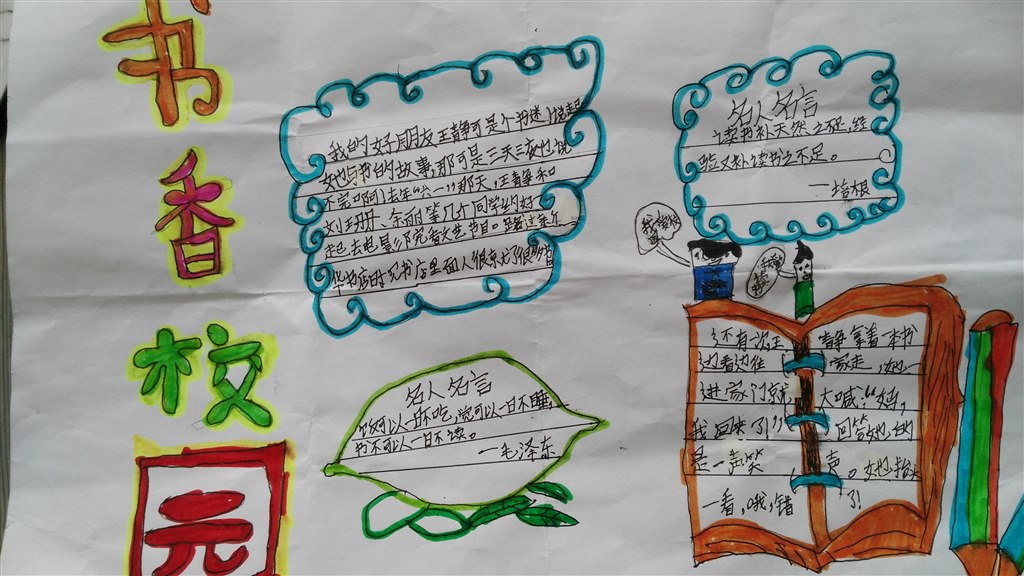 书香校园
我的好朋友王静可是个书迷！说起
她与书的故事，那可是三天三夜也说
不完啊！去年“六一”那天，王静和
刘珊珊、余丽等几个同学约好一
起去电影院看文艺节目。路过
华书店时，见书店里面人很多
名人名言
读书补天然之不足，经
验又补读书之不足。
——培根
名人名言
“饭可以一日不吃，觉可以一日不睡，
书不可以一日不读。
——毛泽东
还有一次王静拿着一本书
边看边往家走，她一
进家门就大喊：“妈，
我回来了！”回答她的
是一声笑声。她抬头
一看，哦，错了！